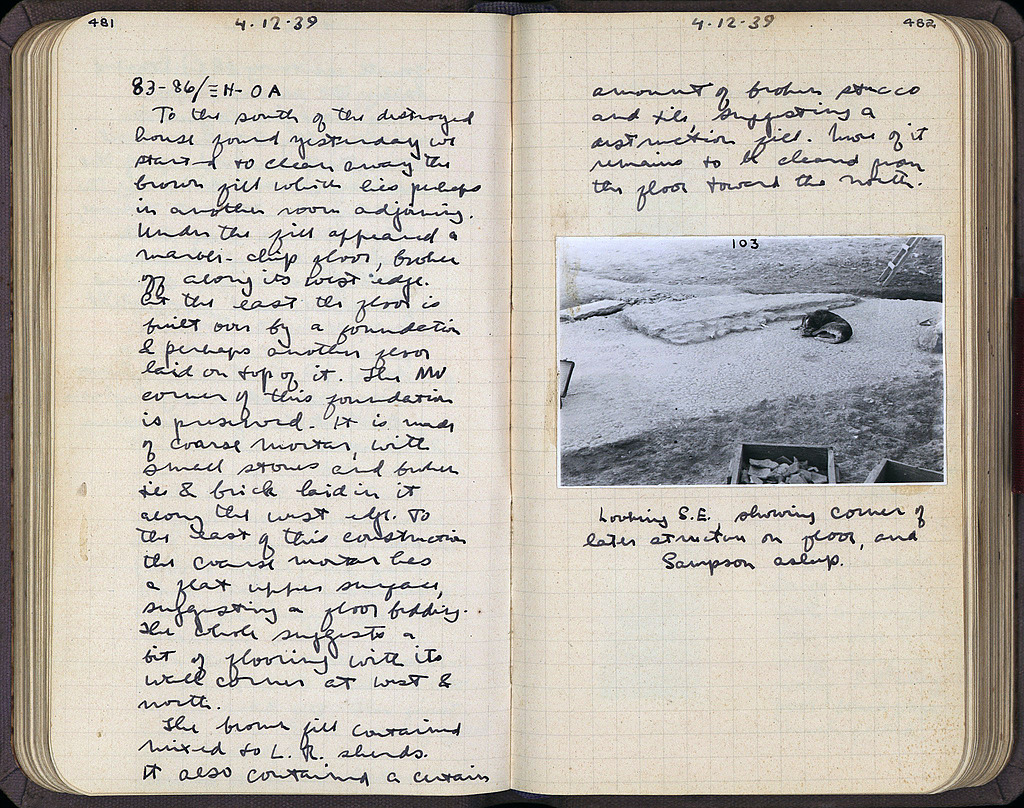 481
4·12·39
83-86/ΞH-OA
To the south of the destroyed
house found yesterday we
started to clean away the
brown fill which lies perhaps
in another room adjoining.
Under the fill appeared a
marble-chip floor, broken
off along its west edge.
At the east the floor is
built over by a foundation
& perhaps another floor
laid on top of it. The NW
corner of this foundation
is preserved. It is made
of coarse mortar, with
small stones and broken
tile & brick laid in it
along the west edge. To
the east of this construction
the coarse mortar has
a flat upper surface,
suggesting a floor bedding.
The whole suggests a
bit of flooring with its
wall corner at west &
north.
The brown fill contained
mixed to L. R. sherds.
It also contained a certain
4·12·39
482
amount of broken stucco
and tile, suggesting a
destruction fill. More of it
remains to be cleared from
the floor toward the north.
103
Looking S.E., showing corner of
later structure on floor, and
Sampson asleep.